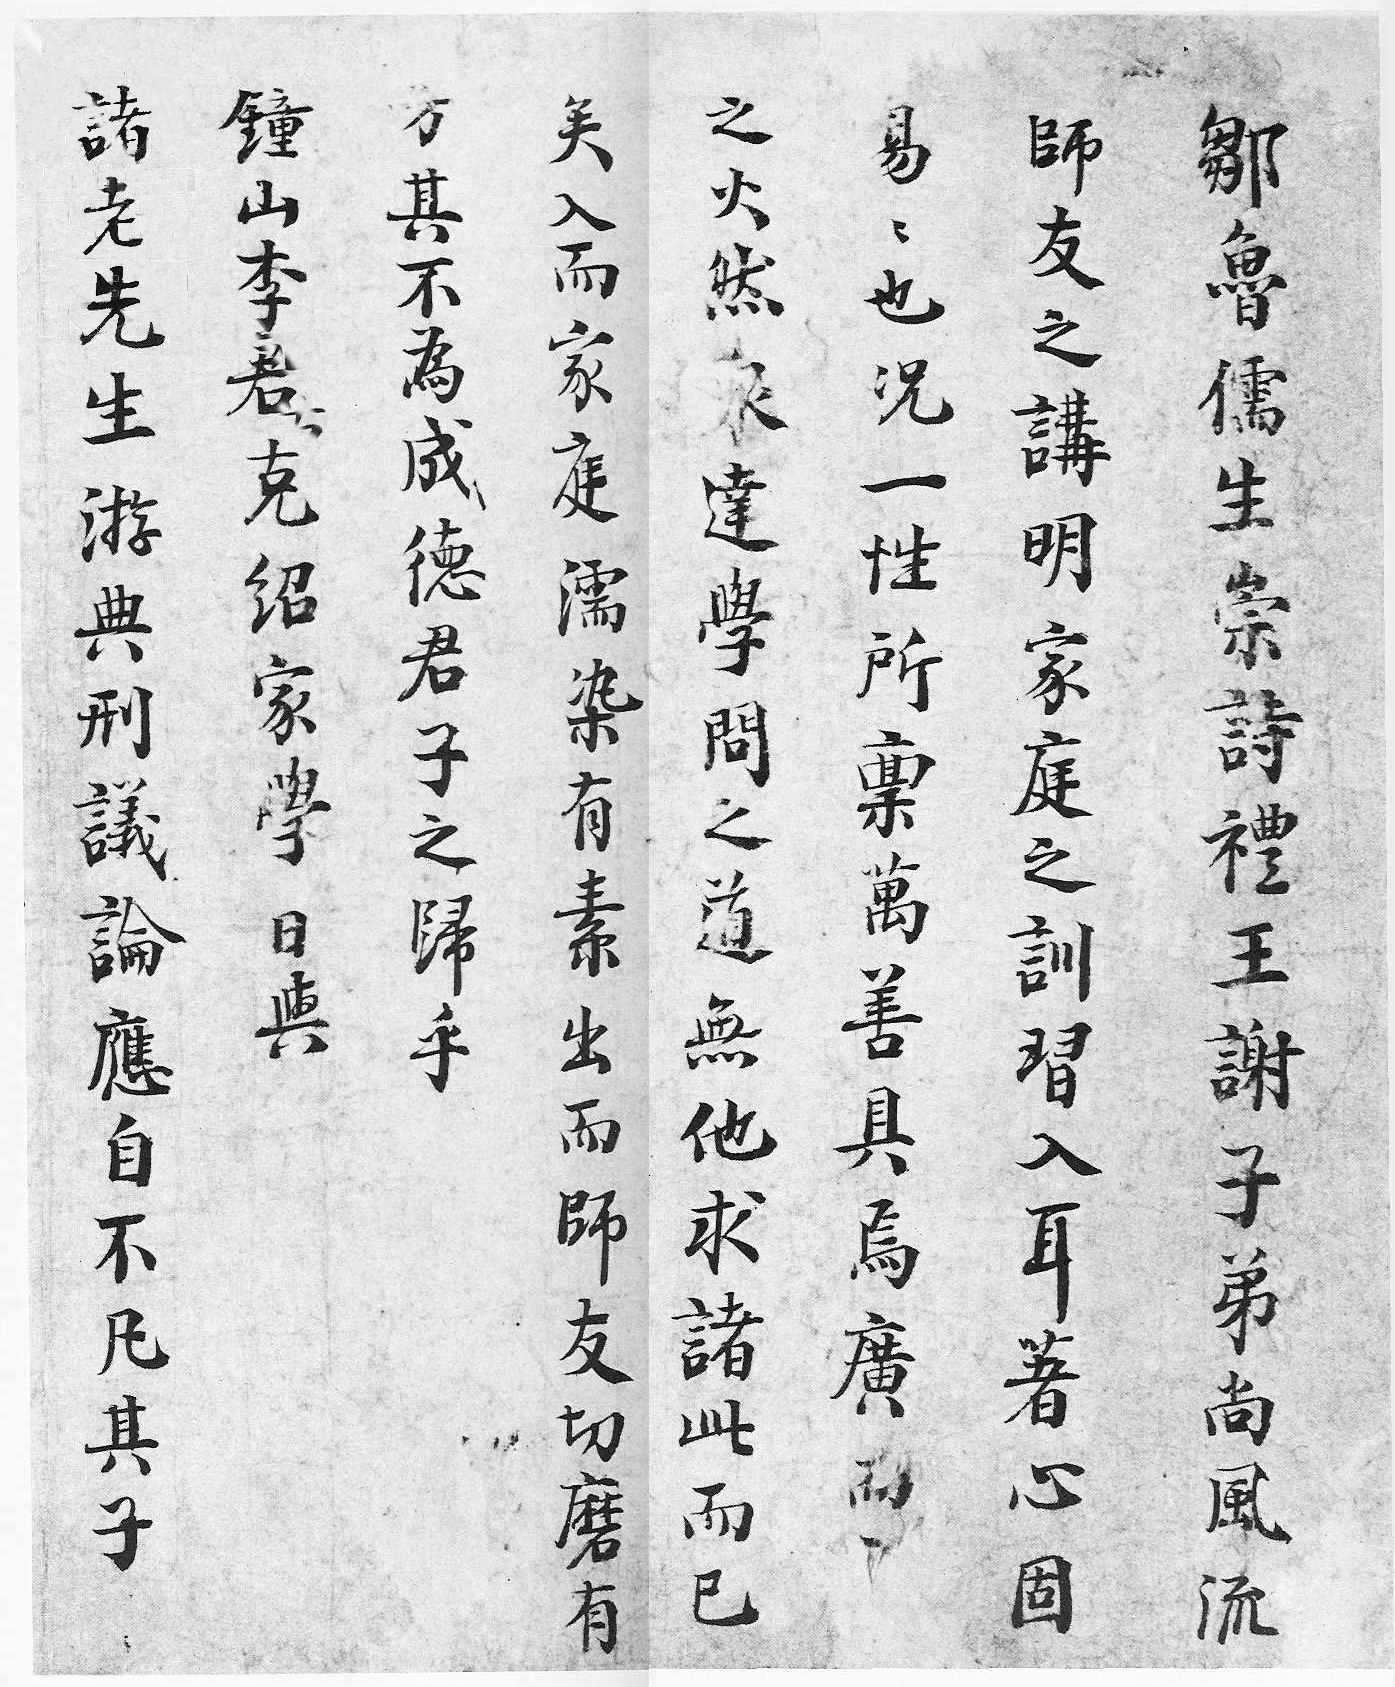 鄒魯儒生崇詩禮王謝子弟尚風流
師友之講明家庭之訓習入耳著心固
易〻也況一性所稟萬善具焉廣而
之火然泉達學問之道無他求諸此而已
矣入而家庭濡染有素出而師友切磨有
方其不為成德君子之歸乎
鐘山李君克紹家學日與
諸老先生游典刑議論應自不凡其子